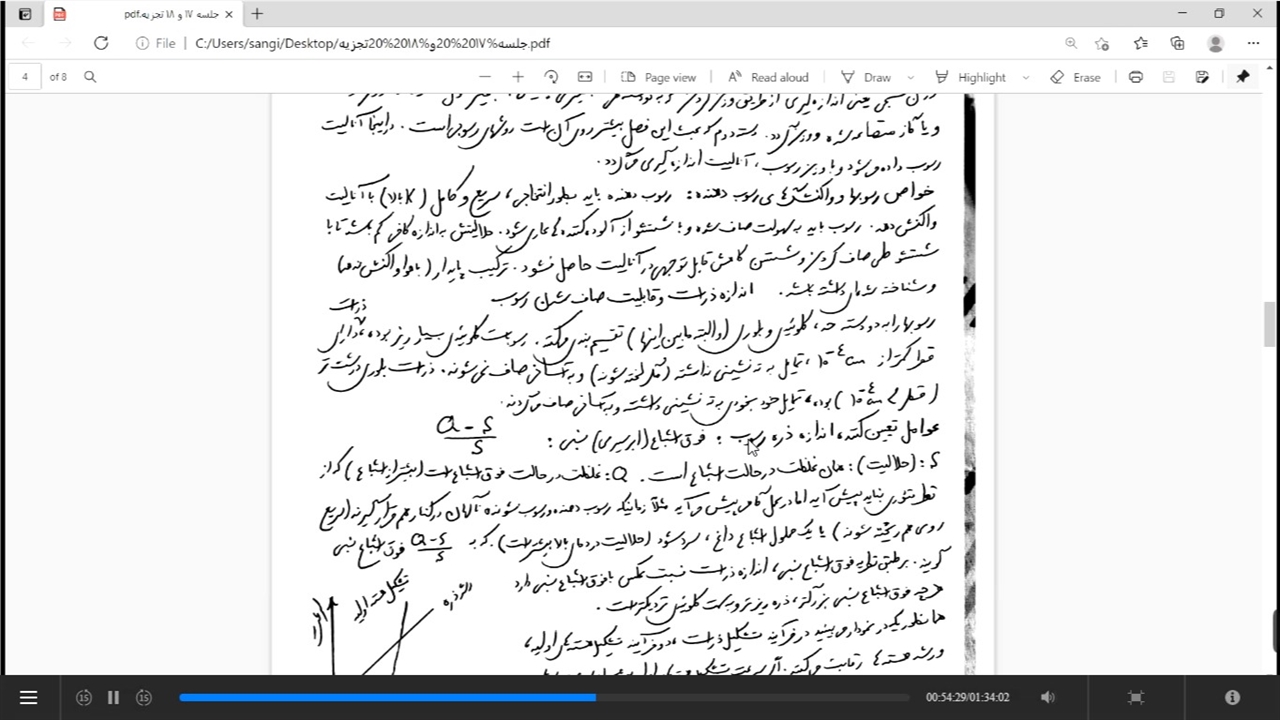 جلسه ۱۷ و ۱۸ تجزیه.pdf
File C:/Users/sangi/Desktop/جلسه%20۱۷%20و%20۱۸%20تجزیه.pdf
4 of 8 Page view Read aloud Draw Highlight Erase
و یا گاز متصاعد شده و وزن می‌گردد. دسته دوم که بحث این فصل بیشتر روی آن است روشهای رسوبی است. در اینجا آنالیت
رسوب داده می‌شود و با وزن رسوب، آنالیت اندازه گیری می‌گردد.
خواص رسوبها و واکنشگرهای رسوب دهنده: رسوب دهنده باید بطور انتخابی، سریع و کامل (K بالا) با آنالیت
واکنش دهد. رسوب باید به سهولت صاف شده و با شستشو از آلوده کننده‌ها عاری شود. حلالیتش به اندازه کافی کم باشد تا با
شستشو طی صاف کردن و شستن کاهش قابل توجهی در آنالیت حاصل نشود. ترکیب پایدار (با هوا واکنش ندهد)
و شناخته شده‌ای داشته باشد. اندازه ذرات و قابلیت صاف شدن رسوب
رسوبها را به دو دسته حد، کلوئیدی و بلوری (و البته مابین اینها) تقسیم بندی می‌کنند. رسوبات کلوئیدی بسیار ریز بوده، ذرات دارای
قطر کمتر از 10⁻⁴ cm، تمایل به ته نشینی نداشته (مگر لخته شوند) و به آسانی صاف نمی‌شوند. ذرات بلوری درشت تر
(قطر 10⁻⁴ cm) بوده، تمایل خود بخودی به ته نشینی داشته و به آسانی صاف می‌گردند.
عوامل تعیین کننده اندازه ذره رسوب: فوق اشباع (ابرسیری) نسبی: Q-S/S
S: (حلالیت): همان غلظت در حالت اشباع است. Q: غلظت در حالت فوق اشباع است (بیشتر از اشباع) که از
نظر تئوری نباید پیش آید اما در عمل گاهی پیش می‌آید مثلاً زمانیکه رسوب دهنده و رسوب شونده ناگهان در کنار هم قرار گیرند (سریع
روی هم ریخته شوند) یا یک محلول اشباع داغ، سرد شود (حلالیت در دمای بالا بیشتر است) که به Q-S/S فوق اشباع نسبی
گویند. بر طبق نظریه فوق اشباع نسبی، اندازه ذرات نسبت عکس با فوق اشباع نسبی دارد
هر چه فوق اشباع نسبی بزرگتر، ذره ریزتر و به سمت کلوئیدی نزدیکتر است.
همانطور که در نمودار می‌بینید در فرآیند تشکیل ذرات، دو فرآیند تشکیل هسته‌های اولیه،
و رشد هسته‌ها رقابت می‌کنند.
تشکیل هسته اولیه
رشد ذره
00:54:29/01:34:02